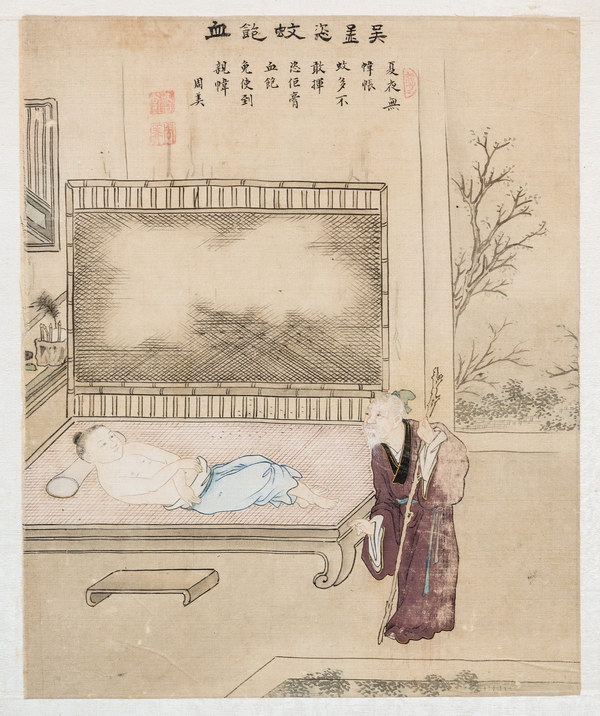 吳猛恣蚊飽血
夏夜無
幃帳
蚊多不
敢揮
恣佢膏
血飽
免使到
親幃
周美